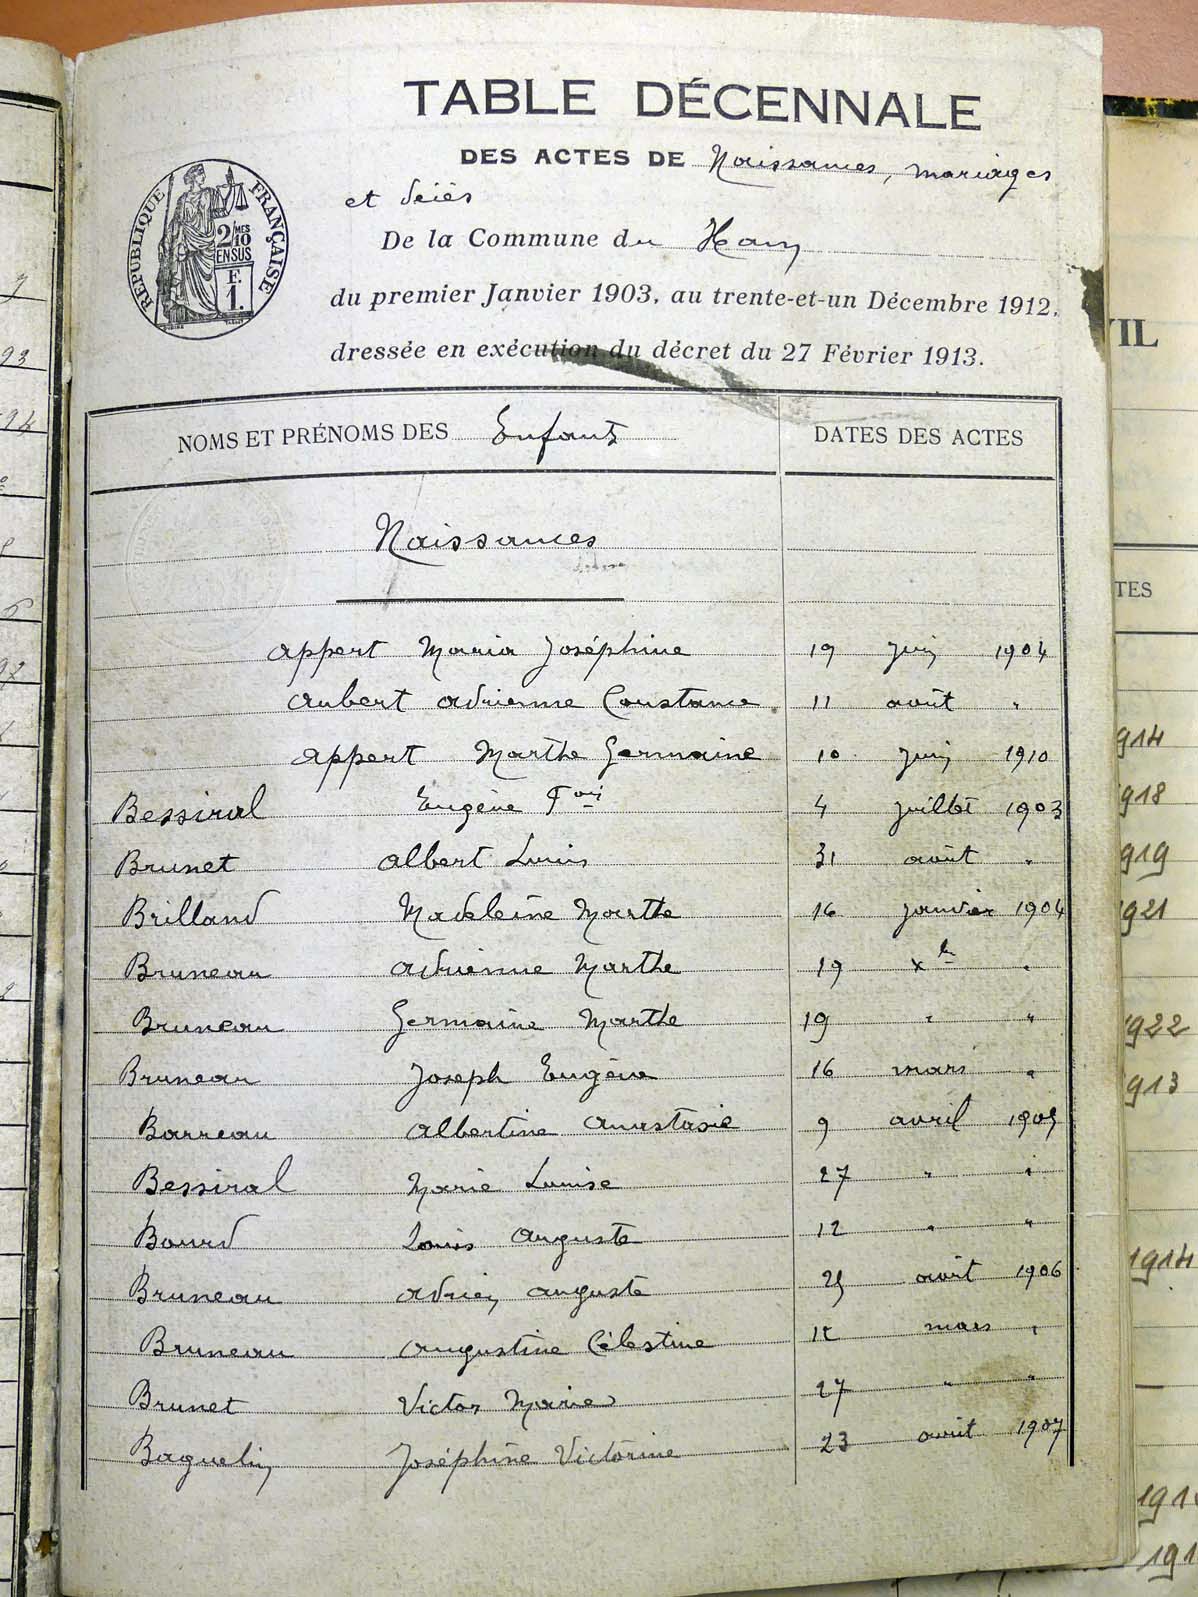 TABLE DÉCENNALE
DES ACTES DE Naissances, mariages
et décès
De la Commune du Ham
du premier Janvier 1903, au trente-et-un Décembre 1912,
dressée en exécution du décret du 27 Février 1913.
RÉPUBLIQUE FRANÇAISE
2/10 MES
EN SUS
F.
1.
NOMS ET PRÉNOMS DES Enfants DATES DES ACTES
Naissances
Appert Maria Joséphine 19 juin 1904
Aubert Adrienne Constance 11 août "
Appert Marthe Germaine 10 juin 1910
Bessiral Eugène Fois 4 juillet 1903
Brunet Albert Louis 31 août "
Brilland Madeleine Marthe 16 janvier 1904
Bruneau Adrienne Marthe 19 xbre "
Bruneau Germaine Marthe 19 " "
Bruneau Joseph Eugène 16 mars "
Barreau Albertine Anastasie 9 avril 1905
Bessiral Marie Louise 27 " "
Bourd Louis Auguste 12 " "
Bruneau Adrien Auguste août 1906
Bruneau Augustine Célestine mars "
Brunet Victor Marie 27 " "
Baguelin Joséphine Victorine 23 août 1907
VIL
TES
914
918
919
921
1922
1913
1914